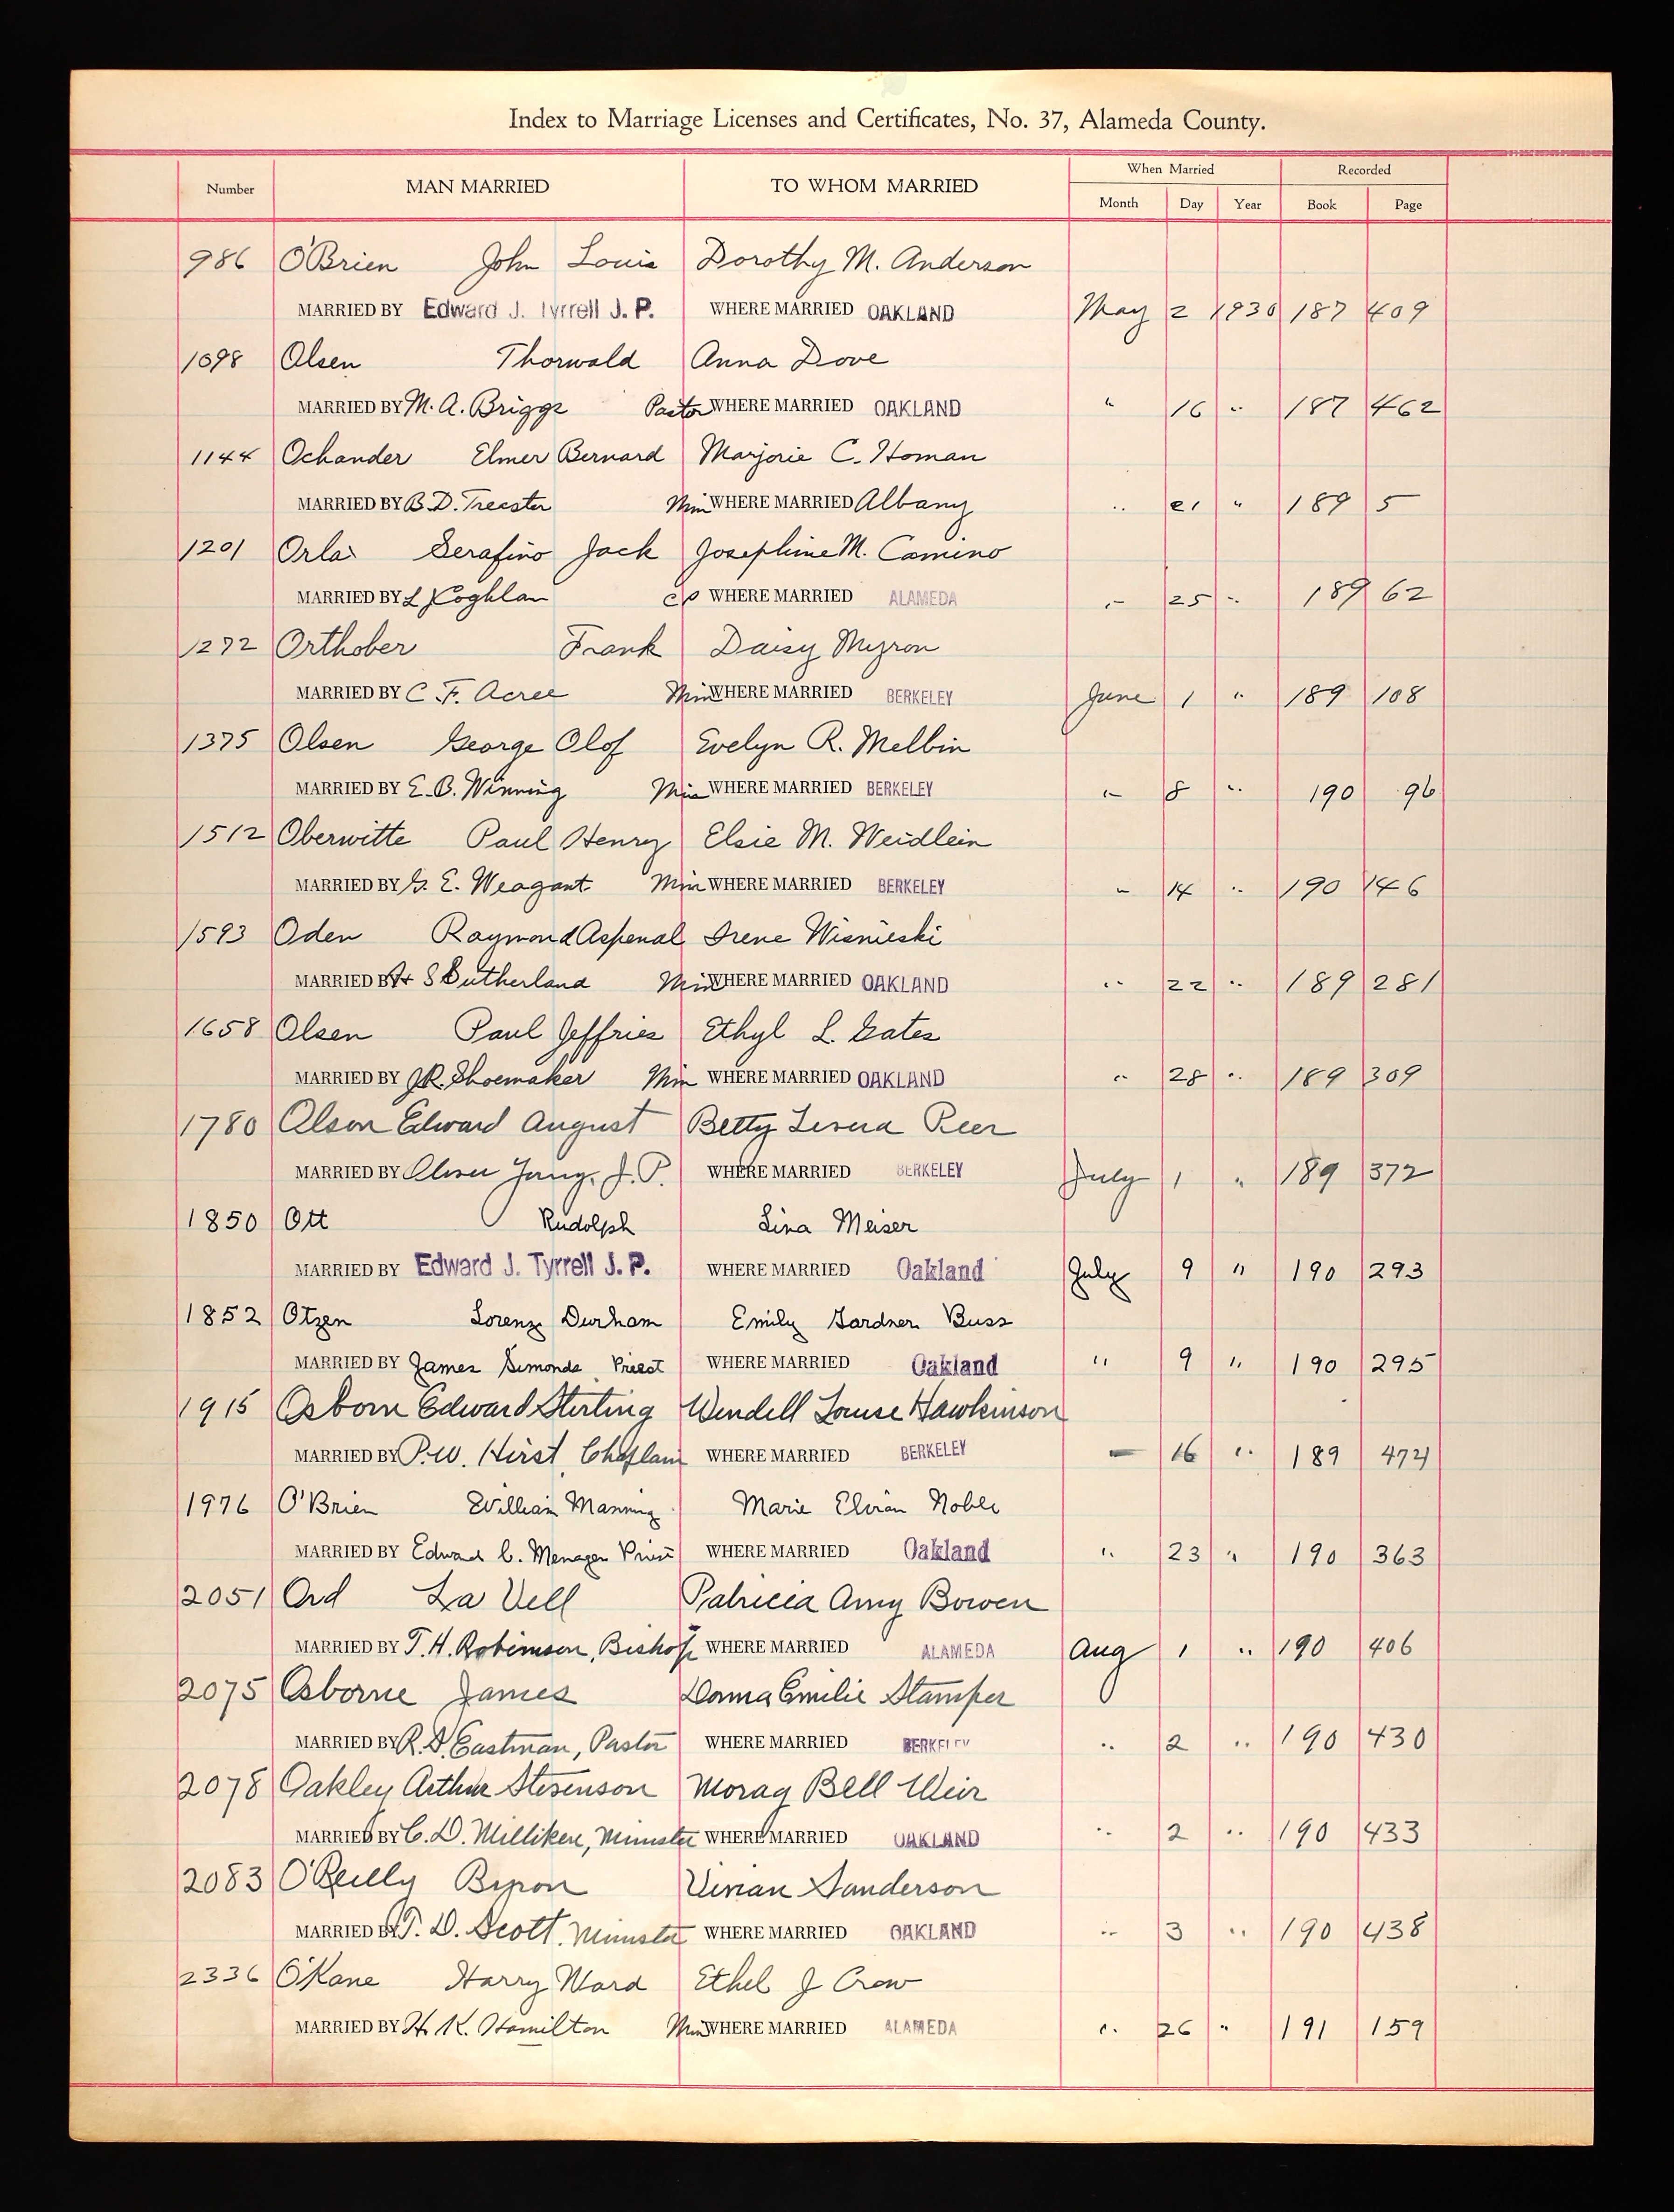 Index to Marriage Licenses and Certificates, No. 37, Alameda County.
Number MAN MARRIED TO WHOM MARRIED When Married Recorded
Month Day Year Book Page
986 O'Brien John Louis Dorothy M. Anderson
MARRIED BY Edward J. Tyrrell J. P. WHERE MARRIED OAKLAND May 2 1930 187 409
1098 Olsen Thorwald Anna Dove
MARRIED BY M. A. Briggs Pastor WHERE MARRIED OAKLAND " 16 " 187 462
1144 Ochander Elmer Bernard Marjorie C. Homan
MARRIED BY B. D. Treester Min WHERE MARRIED Albany " 21 " 189 5
1201 Orlar Serafino Jack Josephine M. Camino
MARRIED BY L Coghlan WHERE MARRIED ALAMEDA " 25 " 189 62
1272 Orthober Frank Daisy Myron
MARRIED BY C. F. Acree Min WHERE MARRIED BERKELEY June 1 " 189 108
1375 Olsen George Olof Evelyn R. Melbin
MARRIED BY E. B. Winning Min WHERE MARRIED BERKELEY " 8 " 190 96
1512 Oberwitte Paul Henry Elsie M. Weidlein
MARRIED BY G. E. Weagant Min WHERE MARRIED BERKELEY " 14 " 190 146
1593 Oden Raymond Aspenal Irene Wisnieski
MARRIED BY Sutherland Min WHERE MARRIED OAKLAND " 22 " 189 281
1658 Olsen Paul Jeffries Ethyl L. Gates
MARRIED BY J.R. Shoemaker Min WHERE MARRIED OAKLAND " 28 " 189 309
1780 Olson Edward August Betty Leona Reer
MARRIED BY Oliver Young, J. P. WHERE MARRIED BERKELEY July 1 " 189 372
1850 Ott Rudolph Lina Meiser
MARRIED BY Edward J. Tyrrell J. P. WHERE MARRIED Oakland July 9 " 190 293
1852 Otzen Lorenz Durham Emily Gardner Buss
MARRIED BY James Simonds Priest WHERE MARRIED Oakland " 9 " 190 295
1915 Osborn Edward Sterling Wendell Louise Hawkinson
MARRIED BY P.W. Hirst, Chaplain WHERE MARRIED BERKELEY — 16 " 189 472
1976 O'Brien William Manning Marie Noble
MARRIED BY Edward C. Menager Priest WHERE MARRIED Oakland " 23 " 190 363
2051 Ord La Vell Patricia Amy Bowen
MARRIED BY T. H. Robinson, Bishop WHERE MARRIED ALAMEDA Aug 1 " 190 406
2075 Osborne James Donna Emilie Stamper
MARRIED BY R. D. Eastman, Pastor WHERE MARRIED BERKELEY " 2 " 190 430
2078 Oakley Arthur Stevenson Morag Bell Weir
MARRIED BY C. D. Milliken, Minister WHERE MARRIED OAKLAND " 2 " 190 433
2083 O'Reilly Byron Vivian Sanderson
MARRIED BY T. D. Scott, Minister WHERE MARRIED OAKLAND " 3 " 190 438
2336 O'Kane Harry Ward Ethel J Crow
MARRIED BY H. K. Hamilton Min WHERE MARRIED ALAMEDA " 26 " 191 159